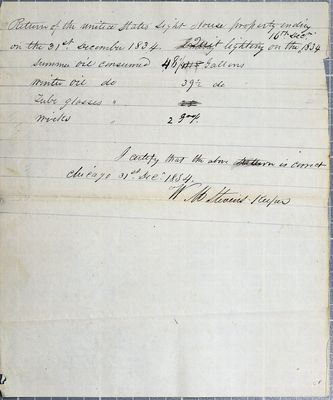 Return of the United States Light House property ending
on the 31st December 1834. lighting on the 16th Decr 1834
Summer oil consumed 48 Gallons
Winter oil do 39½ do
Tube glasses "
Wicks " 2
I certify that the above is correct
Chicago 31st Decr 1834.
W M Stevens Keeper